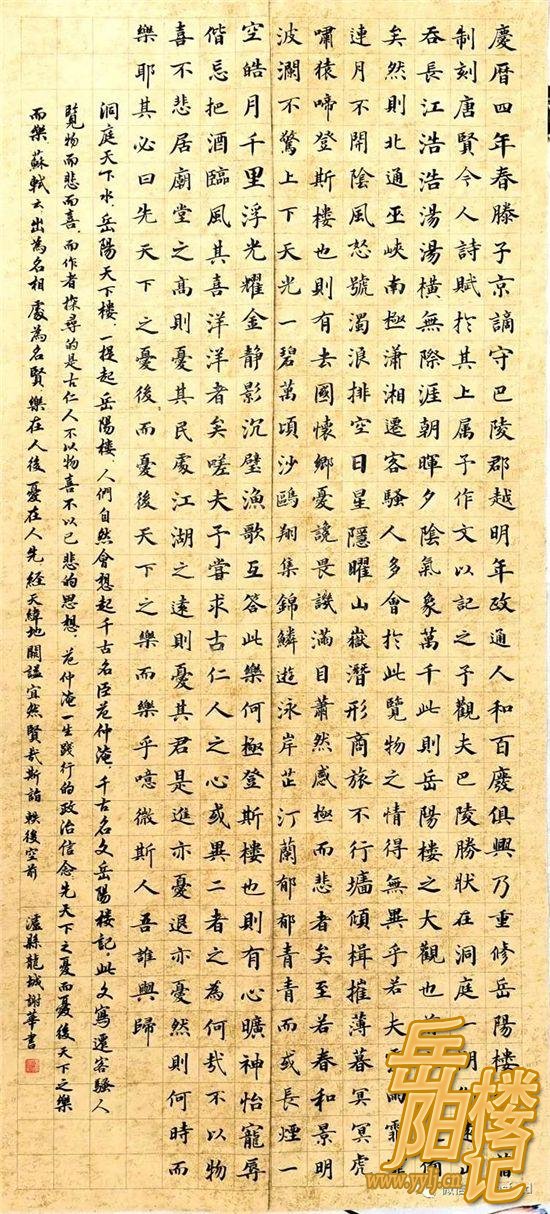 慶曆四年春滕子京謫守巴陵郡越明年政通人和百廢俱興乃重修岳陽楼
制刻唐賢今人詩賦於其上属予作文以記之予觀夫巴陵勝狀在洞庭一湖
吞長江浩浩湯湯横無際涯朝暉夕陰氣象萬千此則岳陽楼之大觀也
矣然則北通巫峽南極瀟湘遷客騷人多會於此覽物之情得無異乎若夫
連月不開陰風怒號濁浪排空日星隱曜山嶽潛形商旅不行墻傾楫摧薄暮冥冥虎
嘯猿啼登斯楼也則有去國懷鄉憂讒畏譏滿目蕭然感極而悲者矣至若春和景明
波瀾不驚上下天光一碧萬頃沙鷗翔集錦鱗遊泳岸芷汀蘭郁郁青青而或長煙一
空皓月千里浮光耀金静影沉璧漁歌互答此樂何極登斯楼也則有心曠神怡寵辱
偕忘把酒臨風其喜洋洋者矣嗟夫予嘗求古仁人之心或異二者之為何哉不以物
喜不悲居廟堂之高則憂其民處江湖之遠則憂其君是進亦憂退亦憂然則何時而
樂耶其必曰先天下之憂後而憂後天下之樂而樂乎噫微斯人吾誰與歸
洞庭天下水，岳陽天下楼，一提起岳陽楼，人們自然會想起千古名臣范仲淹，千古名文岳陽楼記，此文寫遷客騷人
覽物而悲而喜，而作者探尋的是古仁人不以物喜不以己悲的思想，范仲淹一生踐行的政治信念先天下之憂而憂後天下之樂
而樂蘇軾云出為名相處為名賢樂在人後憂在人先經天緯地闕謚宜然賢哉斯詣軼後空前 瀘縣龍城謝華書
岳阳楼记
www.yylj.cn